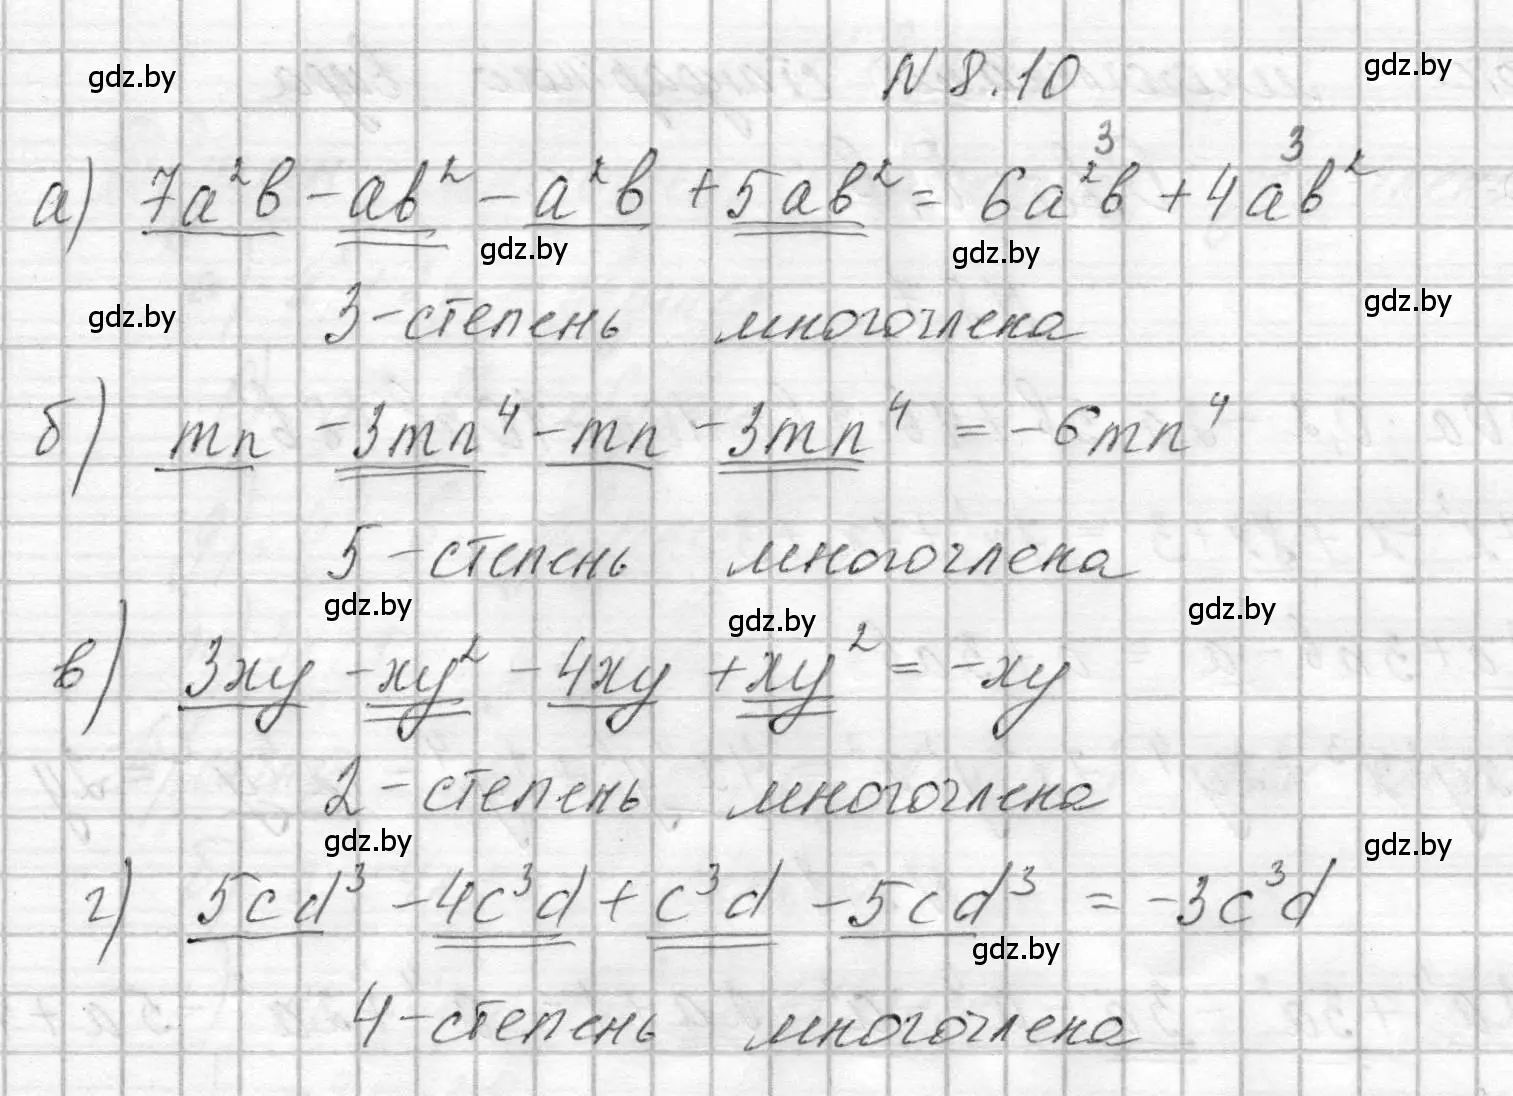 gdz.by
N 8.10
gdz.by
3 3
а) 7a²b - ab² - a²b + 5ab² = 6a²b + 4ab²
gdz.by gdz.by
gdz.by
3-степень многочлена
gdz.by
б) mn - 3mn⁴ - mn - 3mn⁴ = -6mn⁴
5-степень многочлена
gdz.by gdz.by gdz.by
в) 3xy - xy² - 4xy + xy² = -xy
2-степень многочлена
gdz.by gdz.by
г) 5cd³ - 4c³d + c³d - 5cd³ = -3c³d
gdz.by
4-степень многочлена